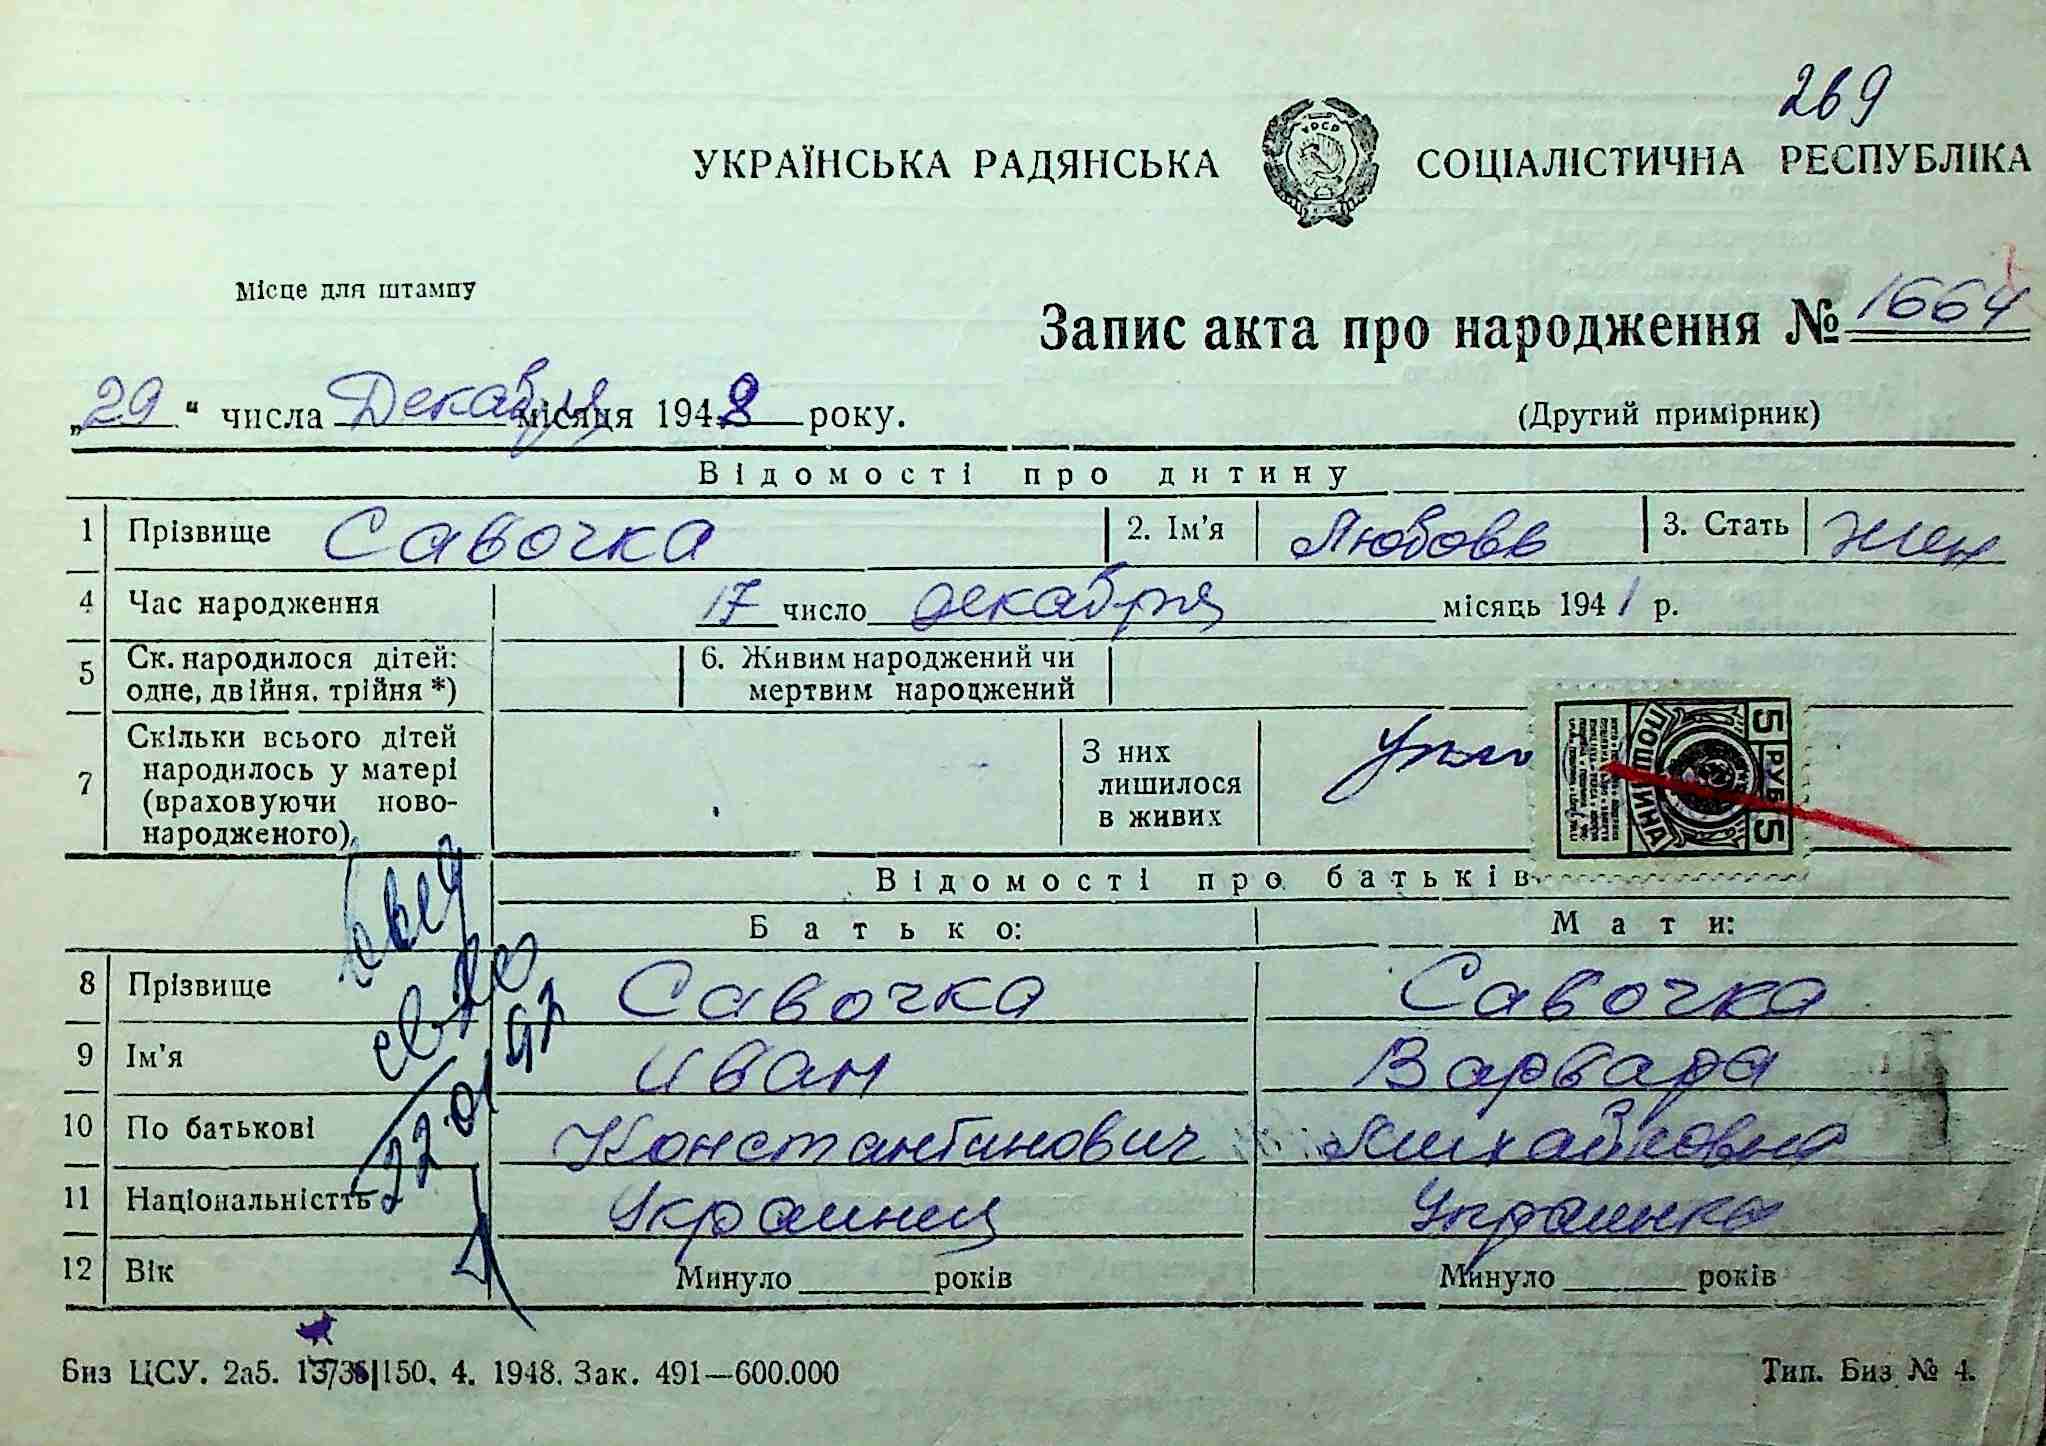 269
УКРАЇНСЬКА РАДЯНСЬКА СОЦІАЛІСТИЧНА РЕСПУБЛІКА
УРСР
Місце для штампу
Запис акта про народження № 1664
„29“ числа Декабря місяця 1948 року.
(Другий примірник)
Відомості про дитину
1 Прізвище Савочка 2. Ім'я Любовь 3. Стать жен
4 Час народження 17 число декабря місяць 1941 р.
5 Ск. народилося дітей: одне, двійня, трійня *) 6. Живим народжений чи мертвим народжений
7 Скільки всього дітей народилось у матері (враховуючи новонародженого) З них лишилося в живих
5 РУБ 5
ПОШЛИНА
Відомості про батьків
Батько: Мати:
8 Прізвище Савочка Савочка
9 Ім'я Иван Варвара
10 По батькові Константинович Михайловна
11 Національність Украинец Украинка
12 Вік Минуло років Минуло років
22.01
Биз ЦСУ. 2а5. 13/36|150. 4. 1948. Зак. 491—600.000
Тип. Биз № 4.